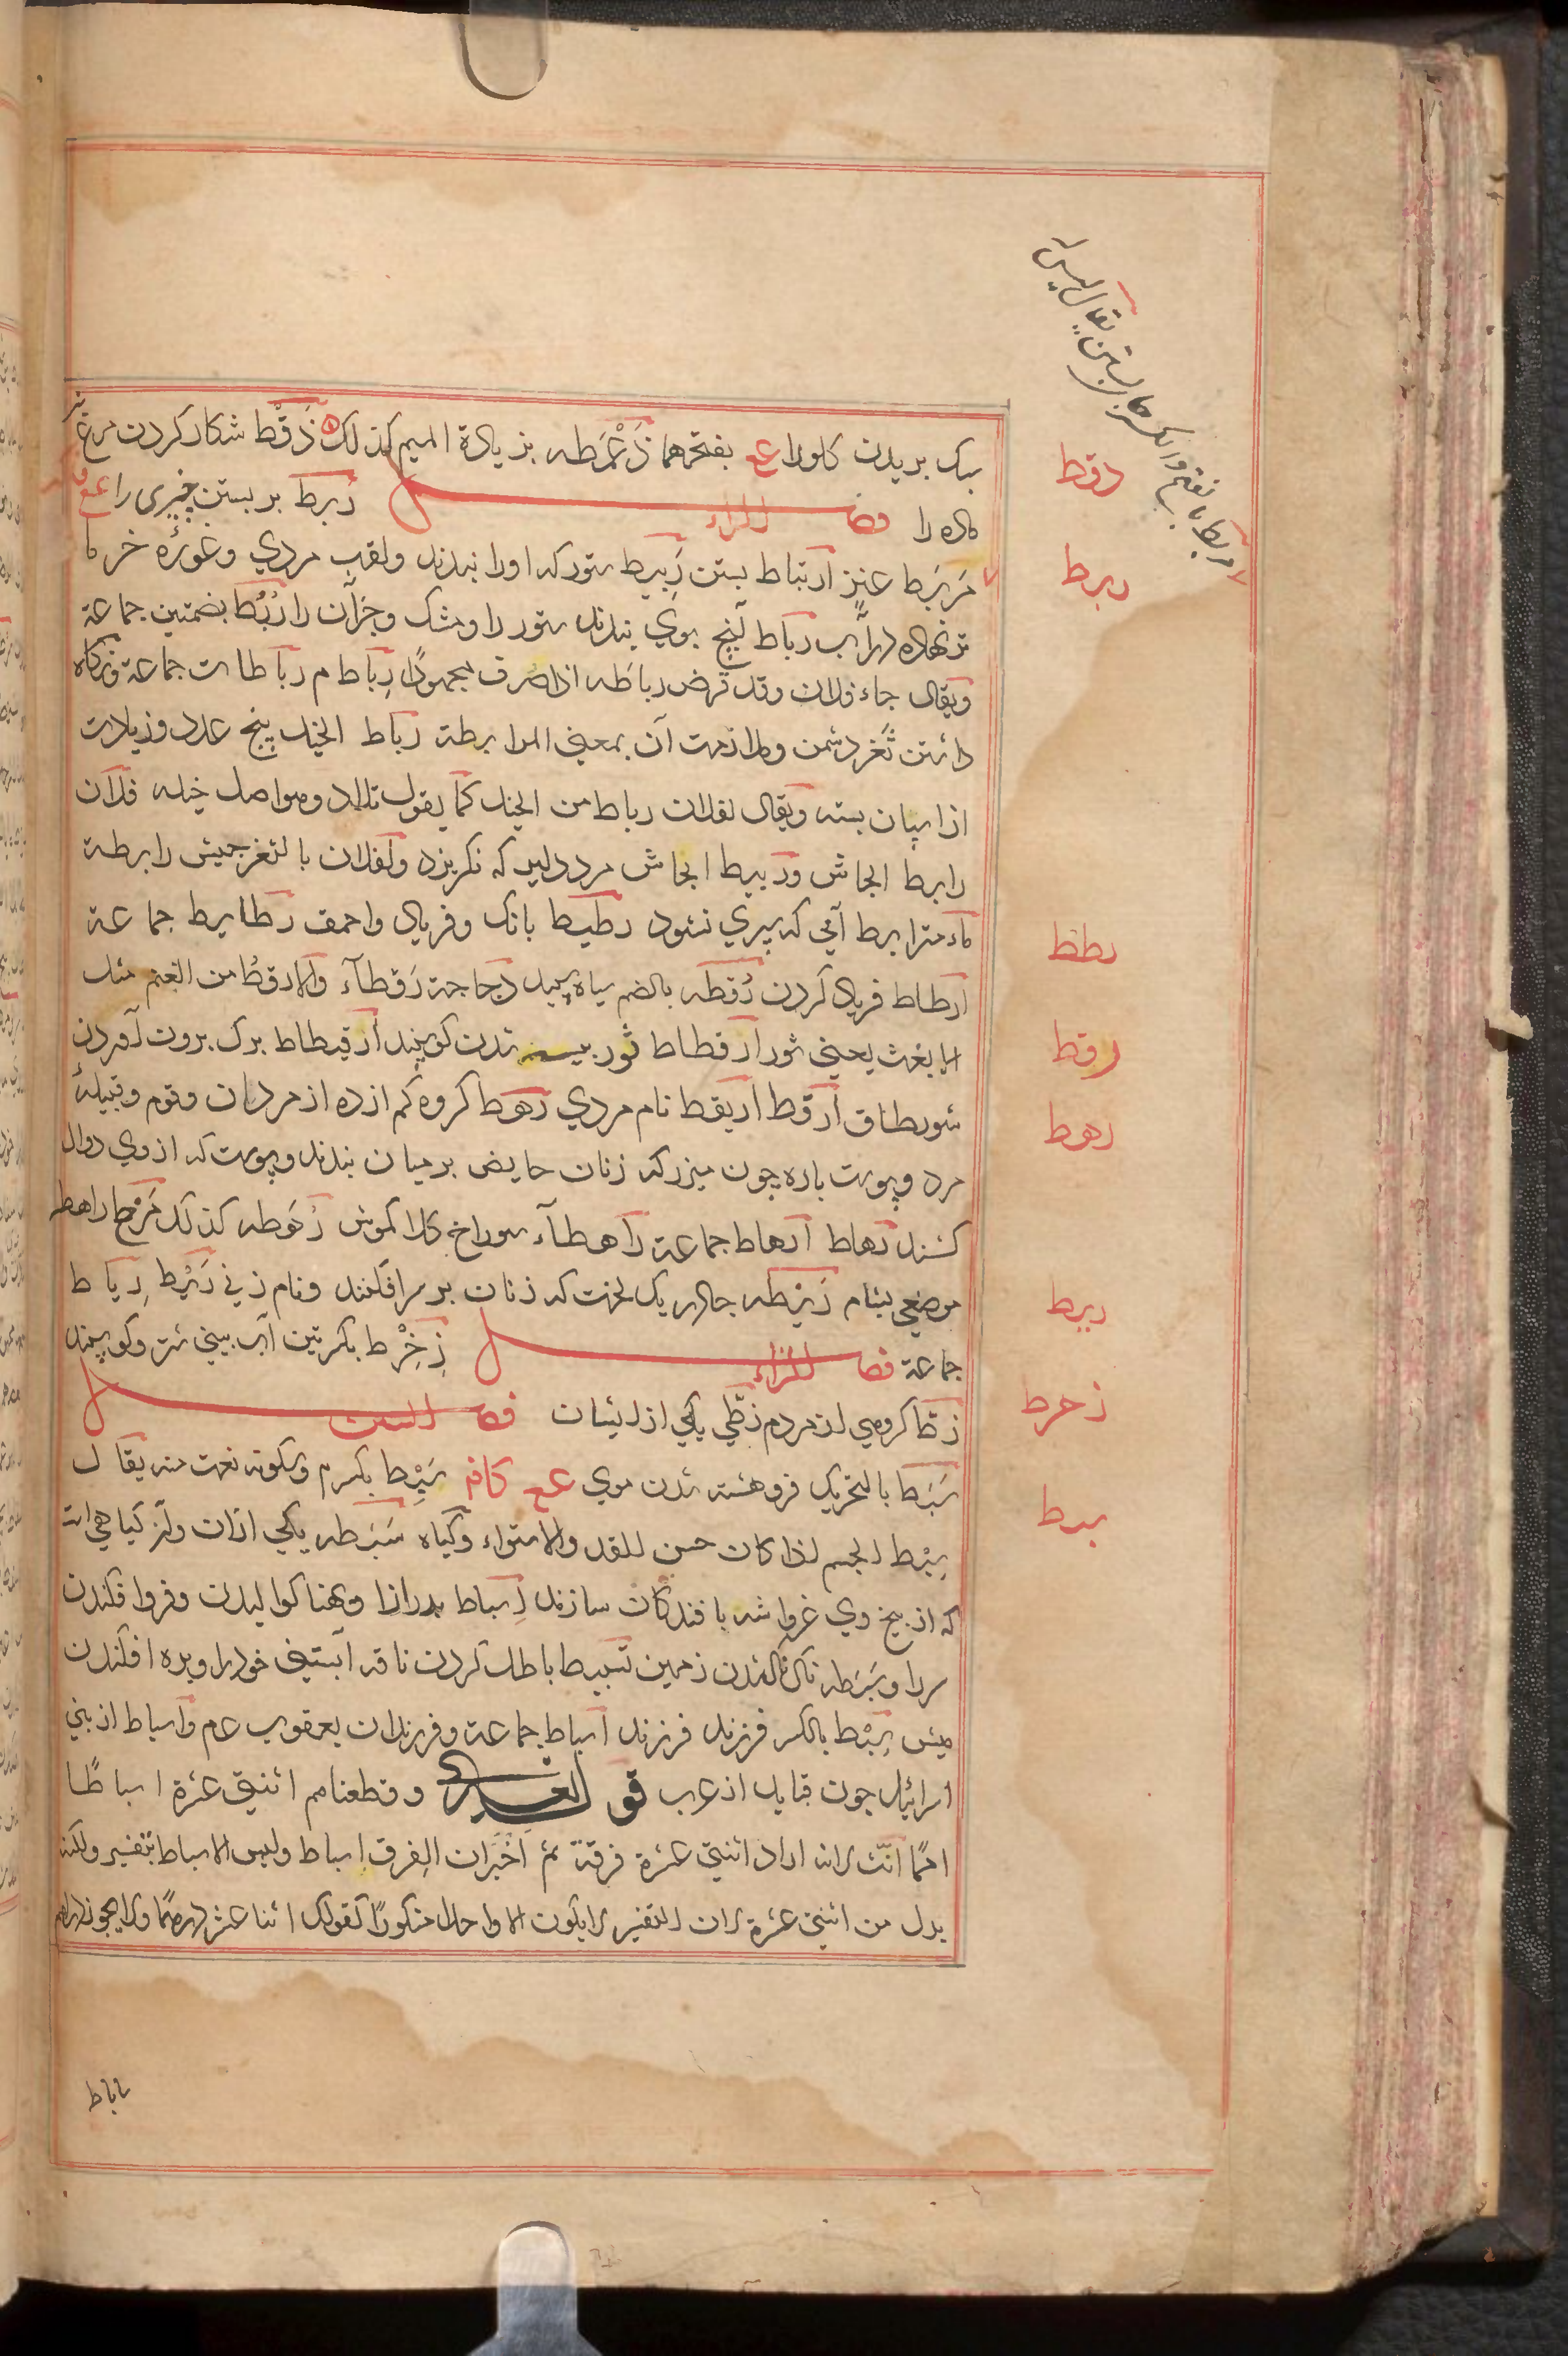 سبک بریدن کلورا عع بفتحهما ذَعْمَطه بزیادة المیم کذلک ذَقْط شکار کردن مرغ نر
ماده را فصل الراء رَبط بر بستن چیزی را عع ف
مَربَط عنیز ارتباط بستن رَبیط ستور که اورا ببندند ولقب مردی وغورۀ خرما
تر نهاده در آب رباط آنچ بوی ببندند ستور را ومشک وجز آن را رُبُط بضمتین جماعة
ویقال جاء فلان وقد قرض رباطه اذا انصرف مجهودًا رِباط م رباطات جماعة ونکاه
داشتن ثغر دشمن وملازمت آن بمعنی المرابطة رباط الخیل پنج عدد وزیادت
از اسپان بسته ویقال لفلان رباط من الخیل کما یقول تلاد وهو اصل خیله فلان
رابط الجاش وربیط الجاش مرد دلیر که نکریزد ولفلان بالثغر جیش رابطة
ماء مترابط آبی که سپری نشود رطیط بانک وفریاد واحمق رطایط جماعة
ارطاط فریاد کردن رُقطه بالضم سیاه سپید دجاجة رَقطآء والارقط من الغنم مثل
الابغث یعنی ثور ارقطاط ثور بیسه شدن کوسپند ارقیطاط برک برون آوردن
شورطاق ارقط اریقط نام مردی رهط کروه کم از ده از مردان وقوم وقبیلۀ
مرد وپوست پاره چون میزر که زنان حایض بر میان بندند وپوست که از وی دوال
کشند رهاط ارهاط جماعة راهطآء سوراخ کلاکموش رُهَطه کذلک مَرج راهط
موضعی بشام رَیْطه چادر یک لخت که زنان بر سر افکنند ونام زنی رَیْط رِیاط
جماعة فصل الزاء زِخْرِط بکسرتین آب بینی شتر وکوسپند
زطّ کروهی از مردم زطّی یکی از ایشان فصل السین
سَبَط بالتحریک فروهشته شدن موی عع کافه سَبِط بکسرم وسکونه نعت منه یقال
سَبْط الجسم اذا کان حسن القد والاستواء وکیاه سَبَطه یکی ازان ونیز کیاهی است
که از بیخ وی غرواشه بافندکان سازند اِسباط بدرازا وپهنا کوالیدن وفروافکندن
سر او سَبَطه ناک شدن زمین تسبیط باطل کردن ناقه آبستنی خود را وبره افکندن
میش سِبْط بالکسر فرزند فرزند اسباط جماعة وفرزندان یعقوب عم واسباط از بنی
اسرائیل چون قبایل از عرب قوله تعالی وقطعناهم اثنتی عشرة اسباطًا
امما انّث لانه اراد اثنتی عشرة فرقة ثم اخبر ان الفرق اسباط ولیس الاسباط بتفسیر ولکنه
بدل من اثنتی عشرة لان التفسیر لا یکون الا واحدا منکورًا کقولک اثنا عشر درهمًا ولا یجوز دراهم
ذقط
ربط
رطط
رقط
رهط
ریط
زخرط
سبط
ساباط